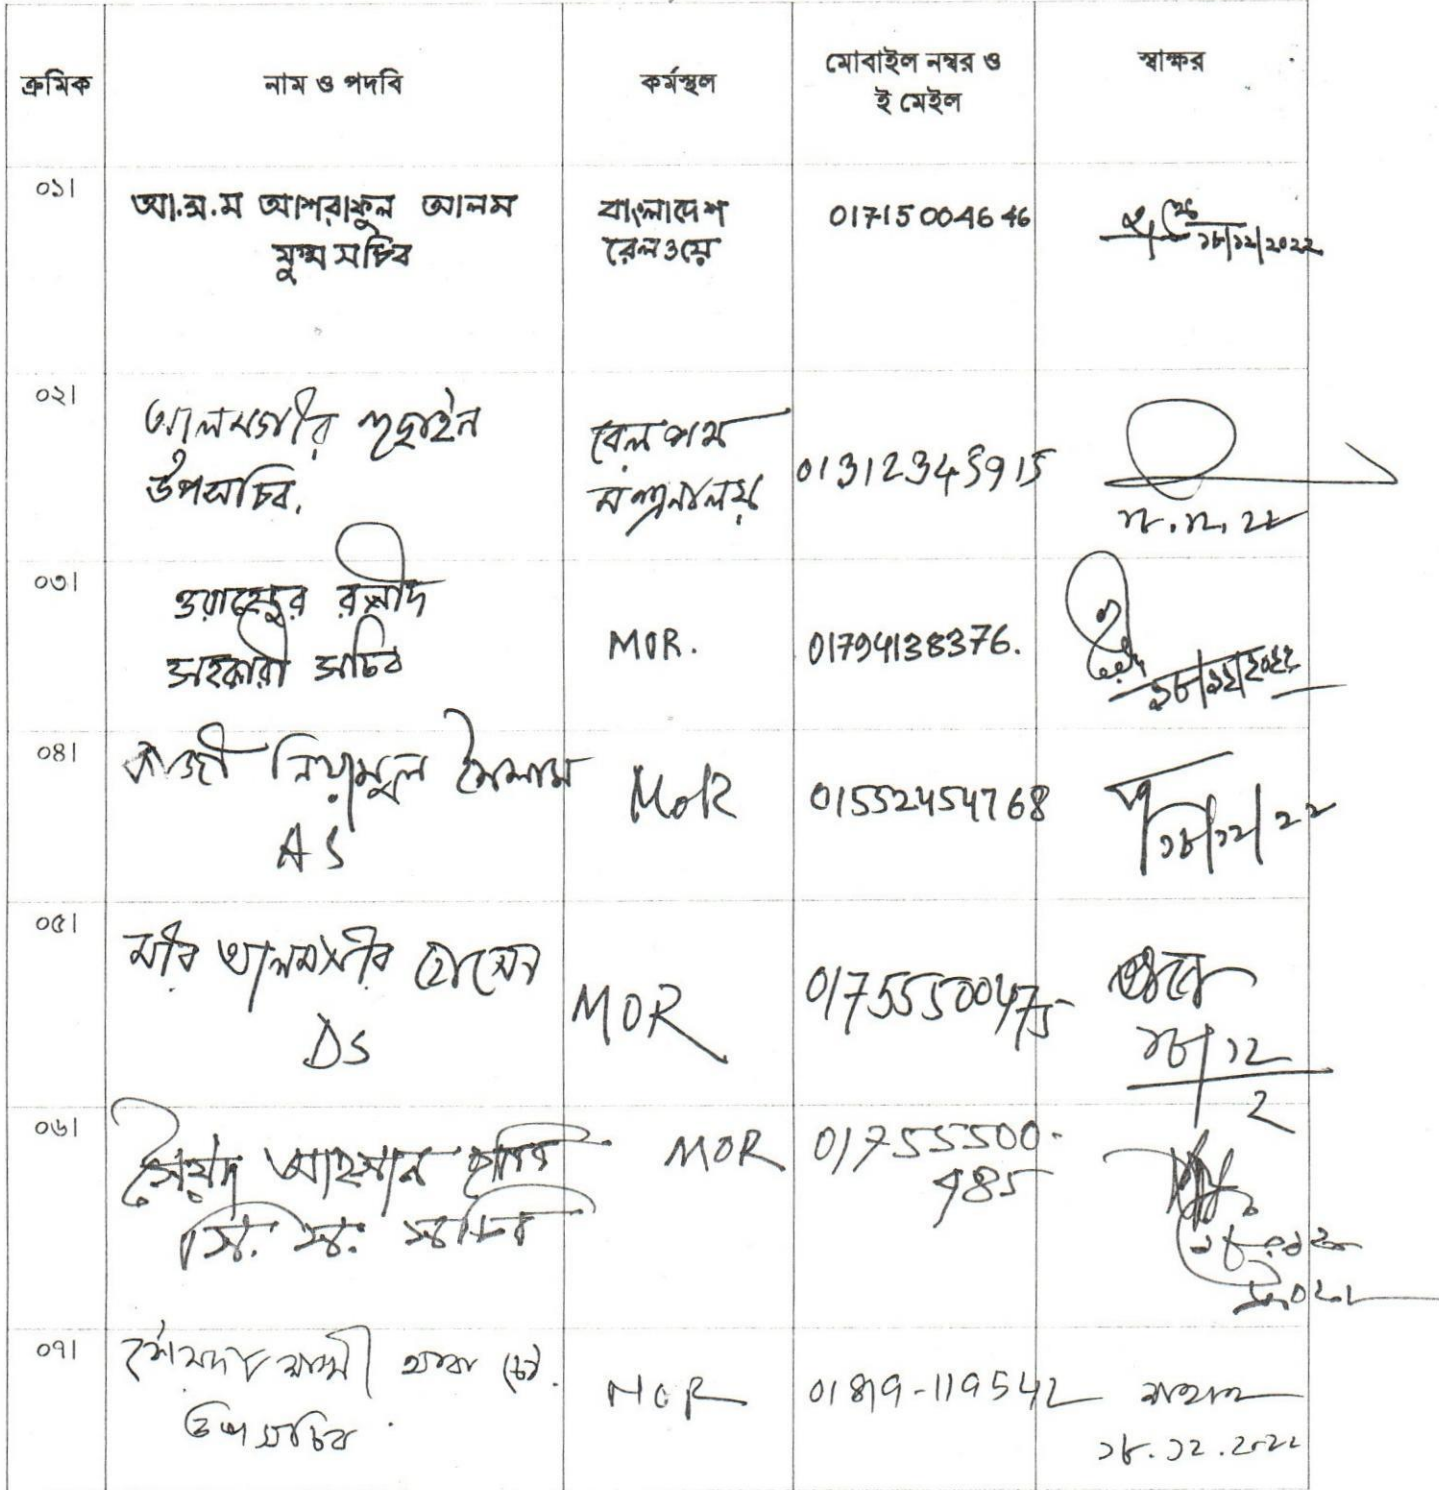 ক্রমিক
নাম ও পদবি
কর্মস্থল
মোবাইল নম্বর ও
ই মেইল
স্বাক্ষর
০১।
আ.স.ম আশরাফুল আলম
যুগ্মসচিব
বাংলাদেশ
রেলওয়ে
01715004646
১৮/১২/২০২২
০২।
আলমগীর হুছাইন
উপসচিব.
রেলপথ
মন্ত্রণালয়
01312345915
১৮.১২.২২
০৩।
ওয়াহেদুর রশীদ
সহকারী সচিব
MOR.
01794138376.
১৮/১২/২০২২
০৪।
কাজী নিয়ামুল ইসলাম
AS
MoR
01552454768
১৮/১২/২২
০৫।
মীর আলমগীর হোসেন
DS
MOR
01755500475
১৮/১২
২
০৬।
সৈয়দ আহসান
সি. স. সচিব
MOR
01755500-
485
০৭।
উপসচিব
MOR
01819-119542
১৮.১২.২০২২